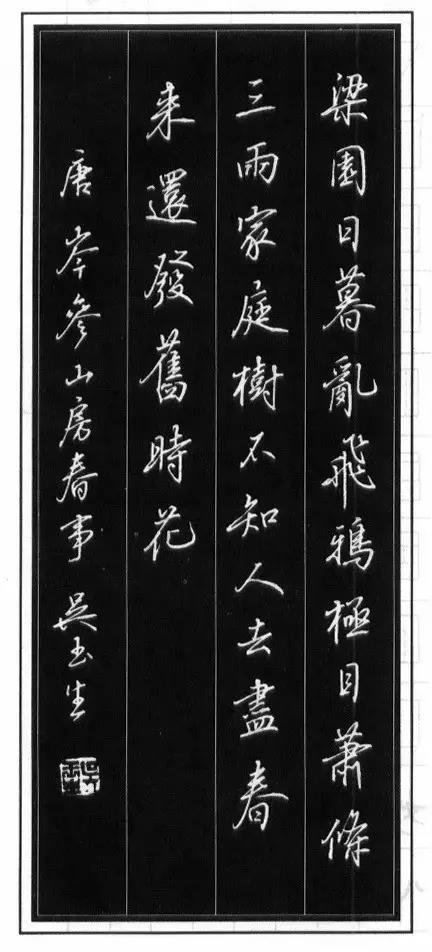 梁園日暮亂飛鴉極目蕭條
三兩家庭樹不知人去盡春
来還發舊時花
唐岑參山房春事 吴玉生